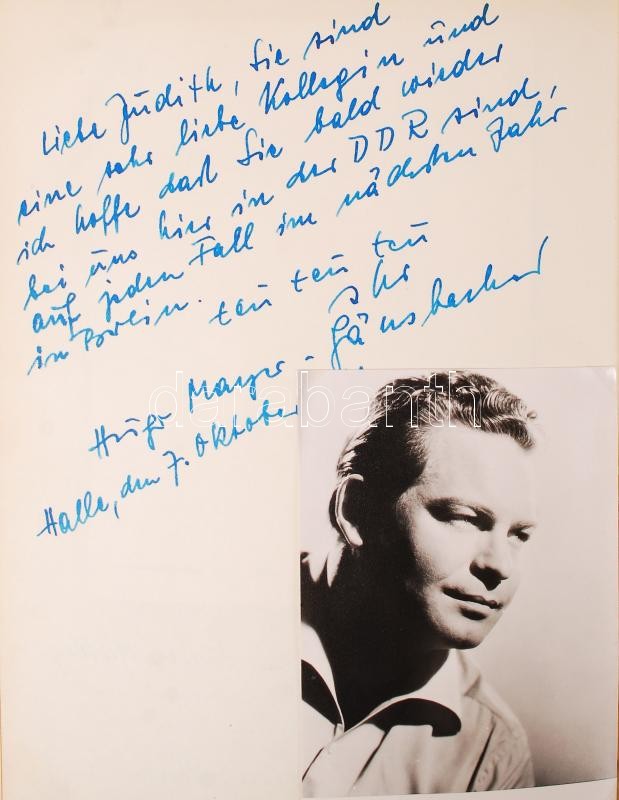 Liebe Judith, Sie sind
eine sehr liebe Kollegin und
ich hoffe daß Sie bald wieder
bei uns hier in der DDR sind,
auf jeden Fall im nächsten Jahr
in Berlin. teu teu teu
Ihr
Hugo Mayer-Gänsbacher
Halle, den 7. Oktober
darabanth